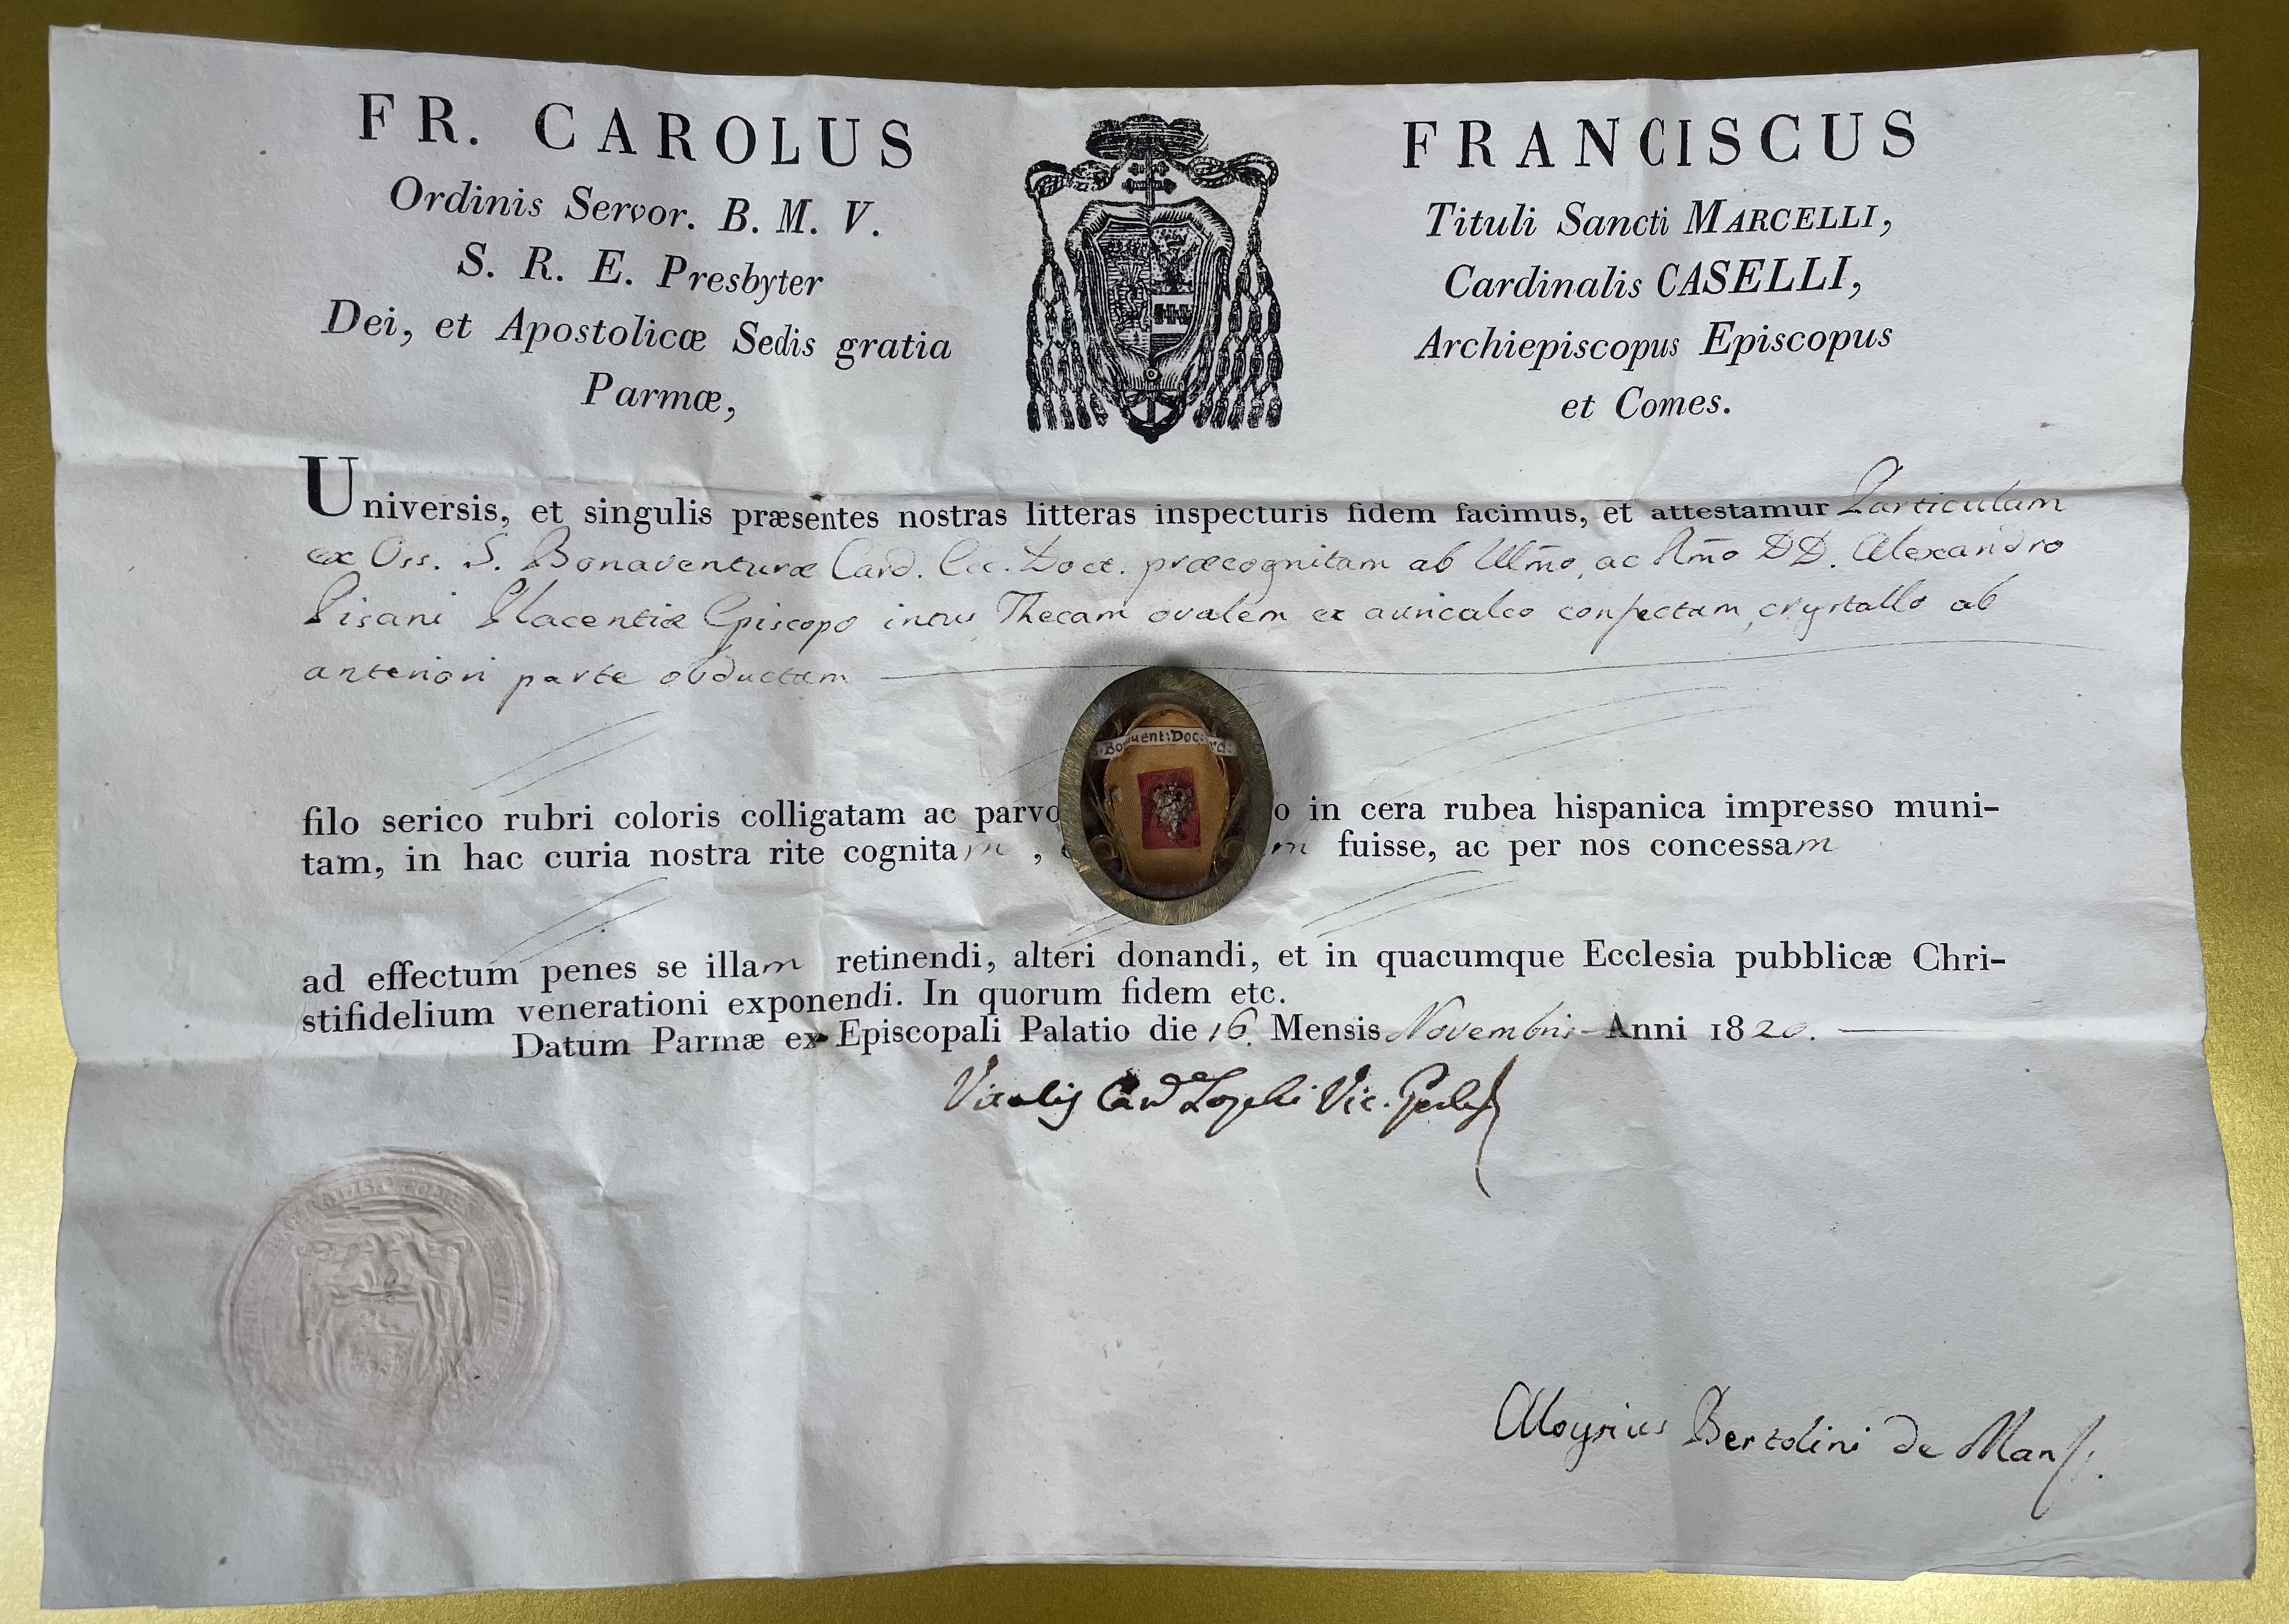 FR. CAROLUS FRANCISCUS
Ordinis Servor. B. M. V. Tituli Sancti MARCELLI,
S. R. E. Presbyter Cardinalis CASELLI,
Dei, et Apostolicæ Sedis gratia Archiepiscopus Episcopus
Parmæ, et Comes.
Universis, et singulis præsentes nostras litteras inspecturis fidem facimus, et attestamur Particulam
ex Oss. S. Bonaventuræ Card. Ecc. Doct. præcognitam ab Illm̃o, ac Rm̃o DD. Alexandro
Pisani Placentiæ Episcopo intus Thecam ovalem ex auricalco confectam, crystallo ab
anteriori parte obductam
Doc:
filo serico rubri coloris colligatam ac parvo in cera rubea hispanica impresso muni-
tam, in hac curia nostra rite cognitam, fuisse, ac per nos concessam
ad effectum penes se illam retinendi, alteri donandi, et in quacumque Ecclesia pubblicæ Chri-
stifidelium venerationi exponendi. In quorum fidem etc.
Datum Parmæ ex Episcopali Palatio die 16. Mensis Novembris Anni 1820.
Vitalis Can Loschi Vic.
Aloysius Bertolini de